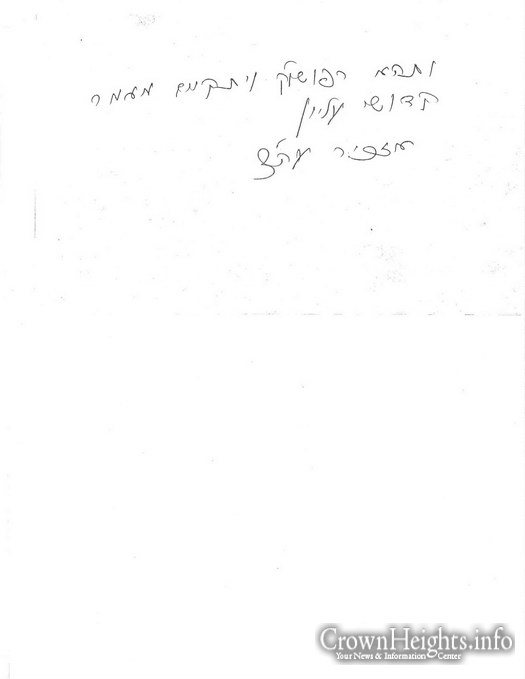 ותהא רפוש״ק ויתקיים מאמר
קדושי עליון
אזכיר עה״צ
CrownHeights.info
Your News & Information Center